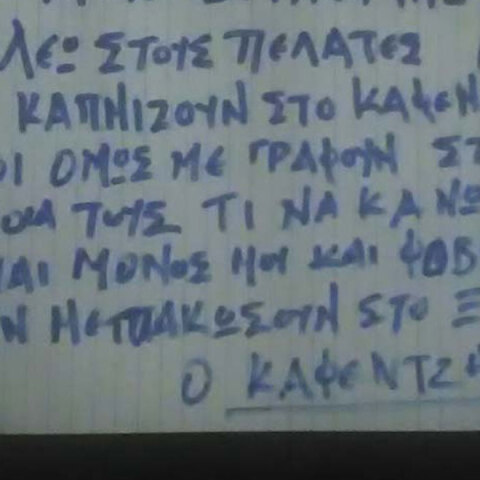 ΛΕΩ ΣΤΟΥΣ ΠΕΛΑΤΕΣ
ΚΑΠΝΙΖΟΥΝ ΣΤΟ ΚΑΦΕΝ
ΟΙ ΟΜΩΣ ΜΕ ΓΡΑΦΟΥΝ ΣΤ
ΤΟΥΣ ΤΙ ΝΑ ΚΑΝΩ
ΜΑΙ ΜΟΝΟΣ ΜΟΥ ΚΑΙ ΦΟΒ
Ν ΜΕ ΠΛΑΚΩΣΟΥΝ ΣΤΟ Ξ
Ο ΚΑΦΕΝΤΖ